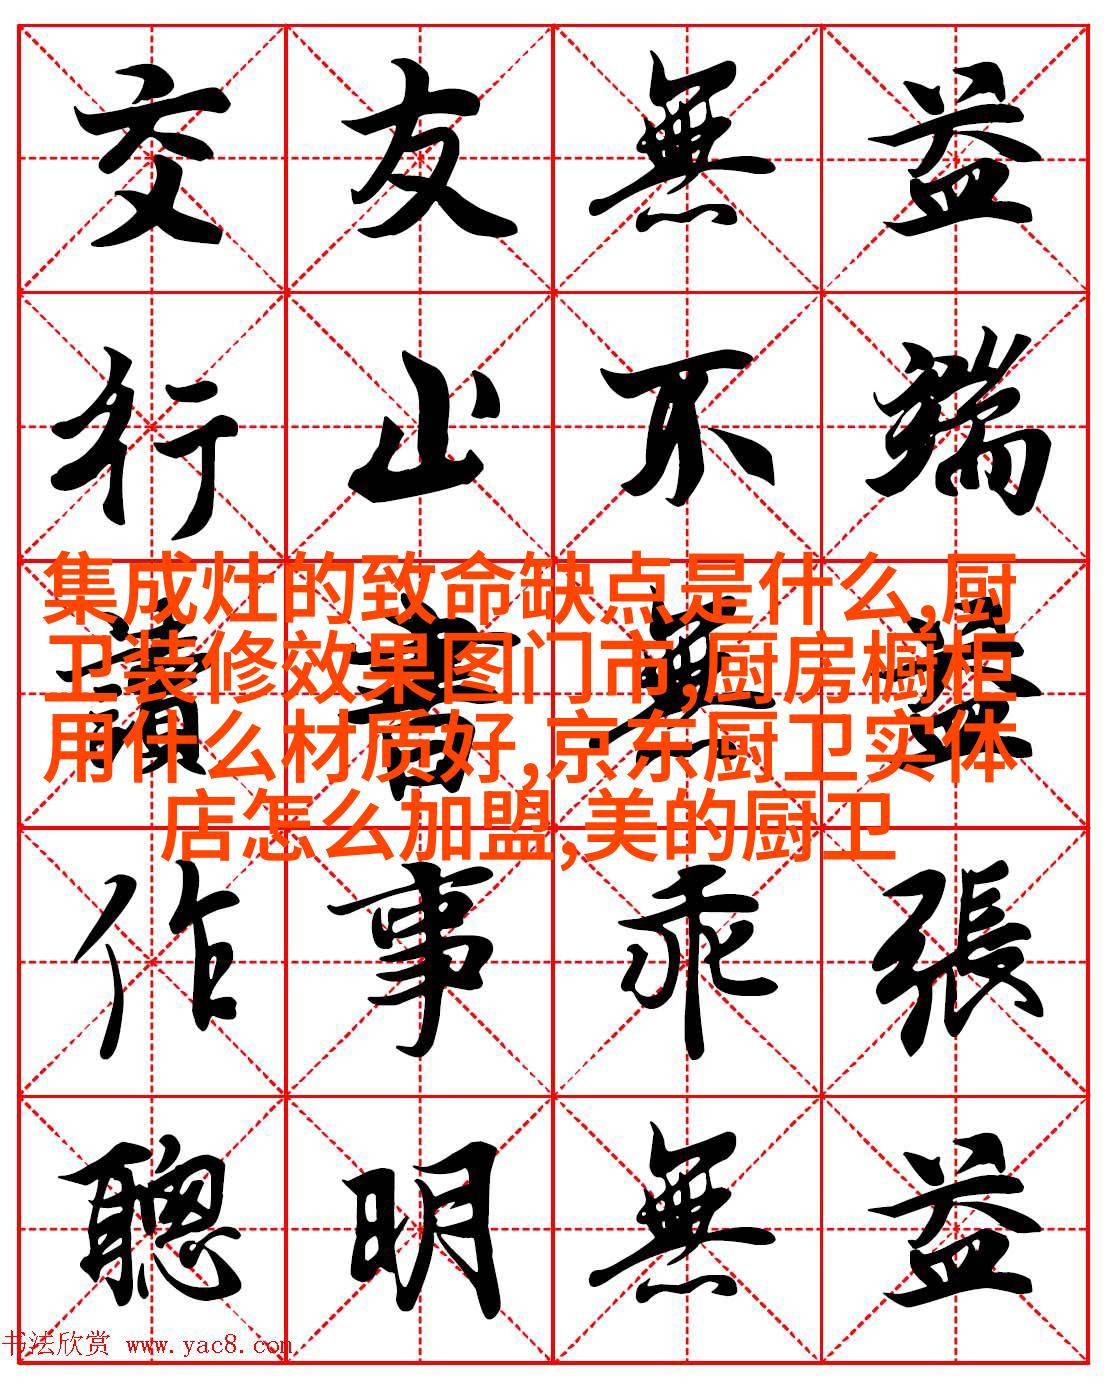 交友無益
行止不端
集成灶的致命缺点是什么,厨
卫装修效果图门市,厨房橱柜
用什么材质好,京东厨卫实体
店怎么加盟,美的厨卫
讀書無益
作事乖張
聰明無益
书法欣赏 www.yac8.com